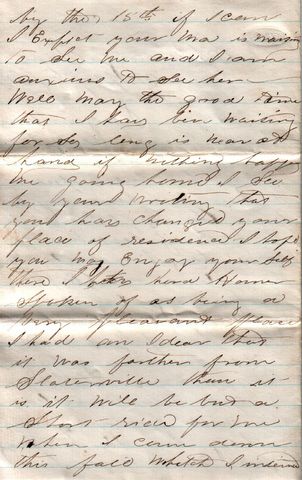 by the 15th if I can
I Expect your Ma is
to See me and I am
anxious to See her
Well May the good time
that I hav ben waiting
for So long is near at
hand if nothing
me going home I See
by your writing that
you hav changed your
place of residence I hope
you may Enjoy your self
there I hav herd
Spoken of as being a
very pleasant place
I had an Idear that
it was farther from
Slaterville then it
is it will be but a
Short ride for me
when I come down
this fall which I intend